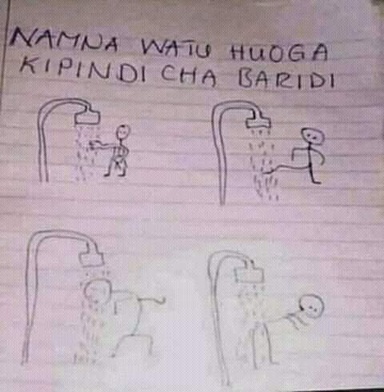 NAMNA WATU HUOGA
KIPINDI CHA BARIDI